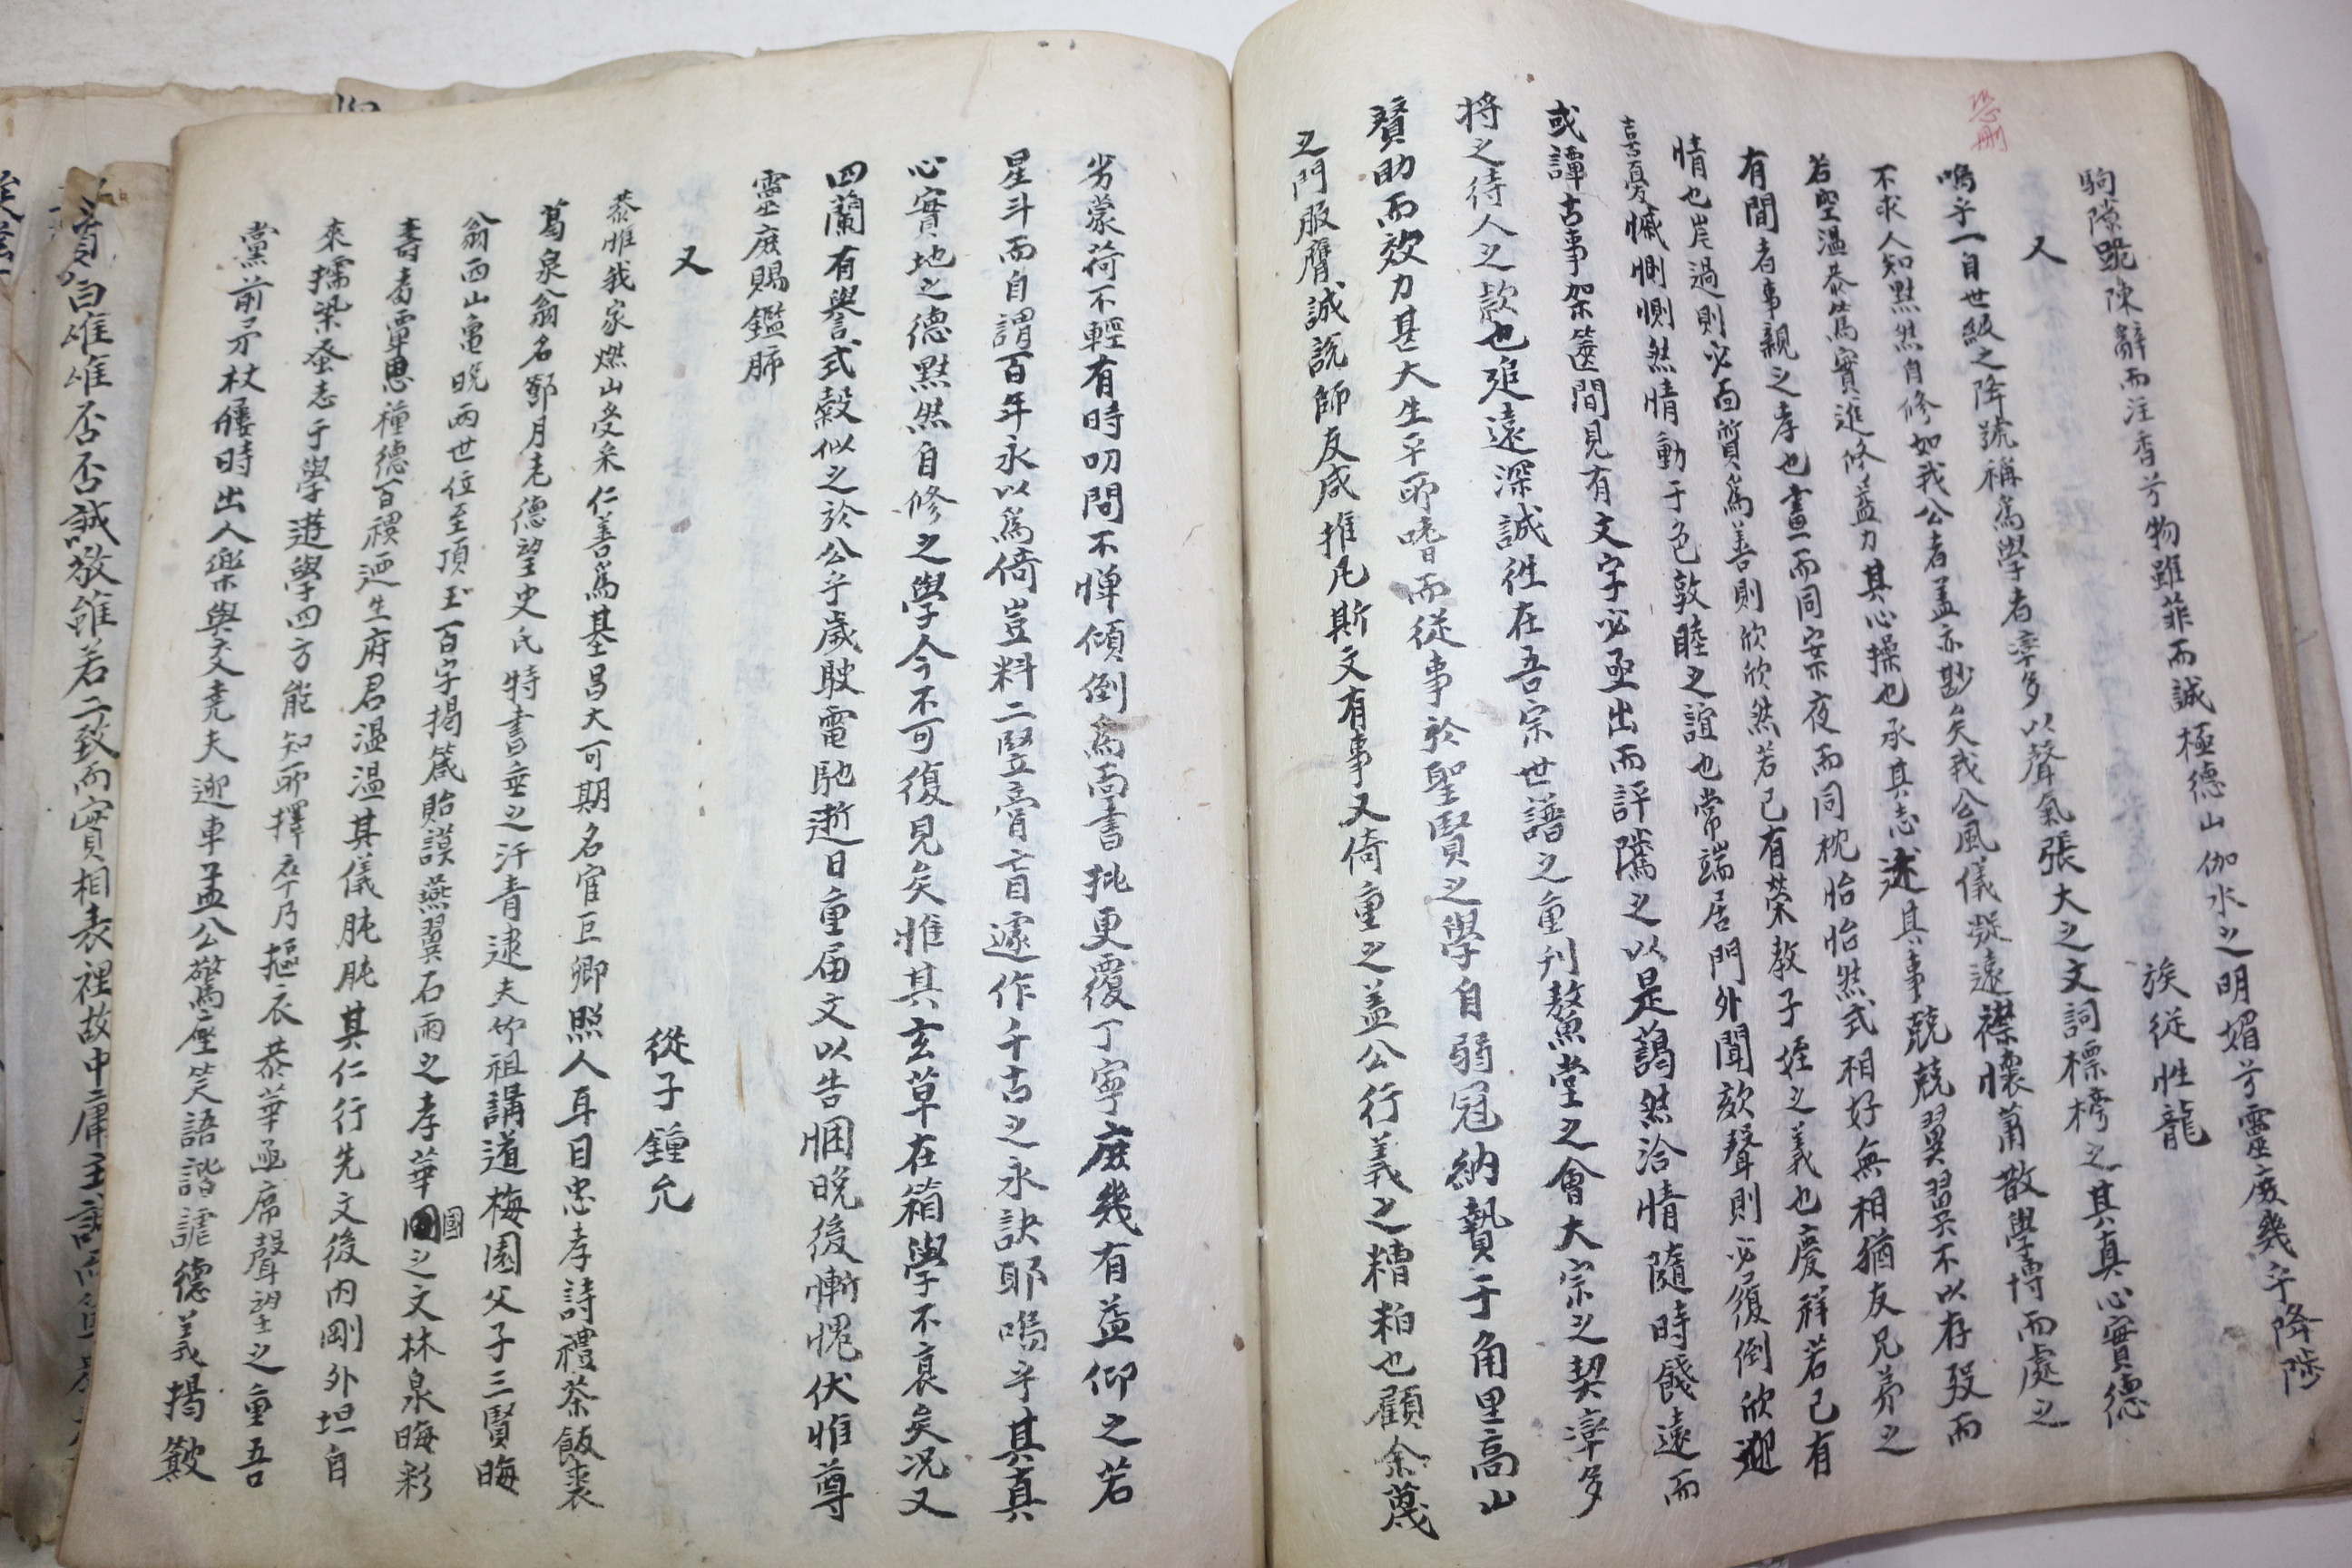 恐刪
駒隙跪陳辭而注香兮物雖菲而誠極德山伽水之明媚兮靈庶幾乎降陟
又
族從性龍
嗚乎一自世級之降號稱爲學者率多以聲氣張大之文詞標榜之其真心實德
不求人知點然自修如我公者盖亦尠矣我公風儀凝遠襟懷蕭散學博而處之
若聖溫恭篤實進修益力其心操也承其志述其事兢兢翼翼罘不以存歿而
有間者事親之孝也晝而同案夜而同枕怡怡然式相好無相猶友兄弟之
情也岂過則必面質爲善則欣欣然若己有榮教子姪之義也慶祥若己有
喜憂慽惻惻然情動于色敦睦之誼也常端居門外聞欬聲則必復倒欣迎
或譚古事架篋間見有文字必亟出而評隲之以是藹然洽情隨時餞遠而
將之待人之款也追遠深誠徃在吾宗世譜之重刊鰲堂之會大宗之契率多
賛助而效力甚大生平所嗜而從事於聖賢之學自弱冠納贄于角里高山
之門服膺誠說師友咸推凡斯文有事又倚重之盖公行義之糟粕也顧余蔑
劣蒙荷不輕有時叨問不憚傾倒爲面書批更覆丁寧庶幾有益仰之若
星斗而自謂百年永以爲倚豈料二竪膏肓遽作千古之永訣耶嗚乎其真
心實地之德點然自修之學今不可復見矣惟其玄草在箱學不衰矣况又
四蘭有譽式穀似之於公乎歲駛電馳逝日重届文以告悃晚後慚愧伏惟尊
靈庶賜鑑肺
又
從子鍾允
恭惟我家燃山受采仁善爲基昌大可期名官巨卿照人耳目忠孝詩禮茶飯裘
葛泉翁名鄒月老德望史氏特書垂之汗青逮夫竹祖講道梅園父子三賢晦
翁西山亀晚兩世位至頂玉百字揭箴貽謨燕翼石雨之孝華國之文林泉晦彩
壽耇覃思種德百禩迺生府君溫溫其儀肫肫其仁行先文後内剛外坦自
來擩染蚤志于學遊學四方能知所擇卒乃摳衣恭華亟席聲望之重吾
黨前矛杖屨時出人樂與交堯夫迎車孟公驚座笑語諧謔德義揚歡